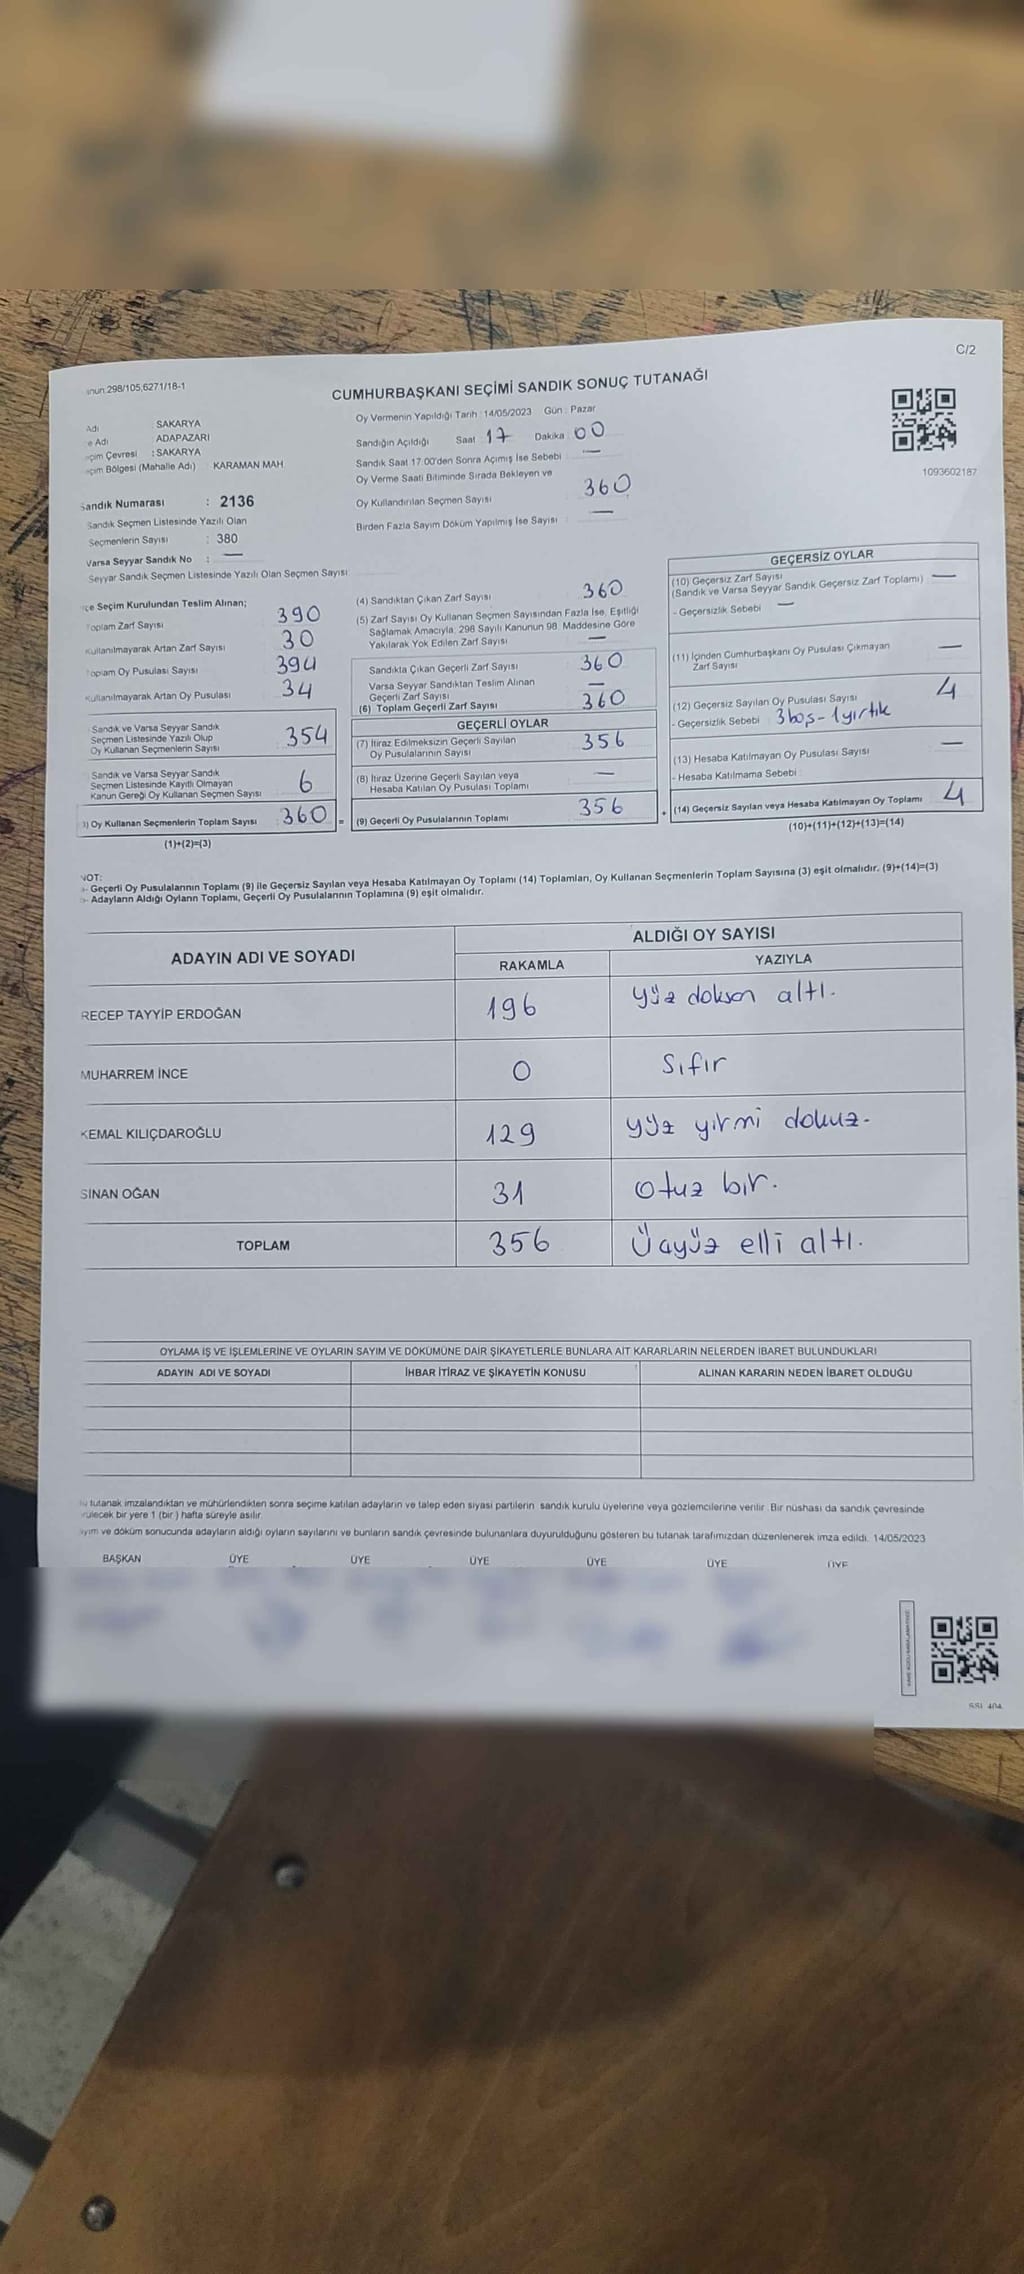 C/2
298/105,6271/18-1
CUMHURBAŞKANI SEÇİMİ SANDIK SONUÇ TUTANAĞI
Adı SAKARYA
Adı ADAPAZARI
Çevresi : SAKARYA
Bölgesi (Mahalle Adı) KARAMAN MAH
Sandık Numarası : 2136
Sandık Seçmen Listesinde Yazılı Olan
Seçmenlerin Sayısı : 380
Varsa Seyyar Sandık No : —
Seyyar Sandık Seçmen Listesinde Yazılı Olan Seçmen Sayısı
Oy Vermenin Yapıldığı Tarih : 14/05/2023 Gün : Pazar
Sandığın Açıldığı Saat 17 Dakika 00
Sandık Saat 17:00'den Sonra Açımış İse Sebebi —
Oy Verme Saati Bitiminde Sırada Bekleyen ve
Oy Kullandırılan Seçmen Sayısı 360
Birden Fazla Sayım Döküm Yapılmış İse Sayısı —
1093602187
Seçim Kurulundan Teslim Alınan;
Toplam Zarf Sayısı 390
Kullanılmayarak Artan Zarf Sayısı 30
Toplam Oy Pusulası Sayısı 394
Kullanılmayarak Artan Oy Pusulası 34
Sandık ve Varsa Seyyar Sandık
Seçmen Listesinde Yazılı Olup
Oy Kullanan Seçmenlerin Sayısı 354
Sandık ve Varsa Seyyar Sandık
Seçmen Listesinde Kayıtlı Olmayan
Kanun Gereği Oy Kullanan Seçmen Sayısı 6
Oy Kullanan Seçmenlerin Toplam Sayısı 360 =
(1)+(2)=(3)
(4) Sandıktan Çıkan Zarf Sayısı 360
(5) Zarf Sayısı Oy Kullanan Seçmen Sayısından Fazla İse, Eşitliği
Sağlamak Amacıyla, 298 Sayılı Kanunun 98. Maddesine Göre
Yakılarak Yok Edilen Zarf Sayısı —
Sandıkta Çıkan Geçerli Zarf Sayısı 360
Varsa Seyyar Sandıktan Teslim Alınan
Geçerli Zarf Sayısı —
(6) Toplam Geçerli Zarf Sayısı 360
GEÇERLİ OYLAR
(7) İtiraz Edilmeksizin Geçerli Sayılan
Oy Pusulalarının Sayısı 356
(8) İtiraz Üzerine Geçerli Sayılan veya
Hesaba Katılan Oy Pusulası Toplamı —
(9) Geçerli Oy Pusulalarının Toplamı 356 +
GEÇERSİZ OYLAR
(10) Geçersiz Zarf Sayısı
(Sandık ve Varsa Seyyar Sandık Geçersiz Zarf Toplamı) —
- Geçersizlik Sebebi —
(11) İçinden Cumhurbaşkanı Oy Pusulası Çıkmayan
Zarf Sayısı —
(12) Geçersiz Sayılan Oy Pusulası Sayısı 4
- Geçersizlik Sebebi 3 boş - 1 yırtık
(13) Hesaba Katılmayan Oy Pusulası Sayısı —
- Hesaba Katılmama Sebebi
(14) Geçersiz Sayılan veya Hesaba Katılmayan Oy Toplamı 4
(10)+(11)+(12)+(13)=(14)
NOT:
- Geçerli Oy Pusulalarının Toplamı (9) ile Geçersiz Sayılan veya Hesaba Katılmayan Oy Toplamı (14) Toplamları, Oy Kullanan Seçmenlerin Toplam Sayısına (3) eşit olmalıdır. (9)+(14)=(3)
- Adayların Aldığı Oyların Toplamı, Geçerli Oy Pusulalarının Toplamına (9) eşit olmalıdır.
ADAYIN ADI VE SOYADI ALDIĞI OY SAYISI
RAKAMLA YAZIYLA
RECEP TAYYİP ERDOĞAN 196 Yüz doksan altı.
MUHARREM İNCE 0 Sıfır
KEMAL KILIÇDAROĞLU 129 Yüz yirmi dokuz.
SİNAN OĞAN 31 Otuz bir.
TOPLAM 356 Üçyüz elli altı.
OYLAMA İŞ VE İŞLEMLERİNE VE OYLARIN SAYIM VE DÖKÜMÜNE DAİR ŞİKAYETLERLE BUNLARA AİT KARARLARIN NELERDEN İBARET BULUNDUKLARI
ADAYIN ADI VE SOYADI İHBAR İTİRAZ VE ŞİKAYETİN KONUSU ALINAN KARARIN NEDEN İBARET OLDUĞU
tutanak imzalandıktan ve mühürlendikten sonra seçime katılan adayların ve talep eden siyasi partilerin sandık kurulu üyelerine veya gözlemcilerine verilir. Bir nüshası da sandık çevresinde
bir yere 1 (bir) hafta süreyle asılır.
ve döküm sonucunda adayların aldığı oyların sayılarını ve bunların sandık çevresinde bulunanlara duyurulduğunu gösteren bu tutanak tarafımızdan düzenlenerek imza edildi. 14/05/2023
BAŞKAN ÜYE ÜYE ÜYE ÜYE ÜYE ÜYE